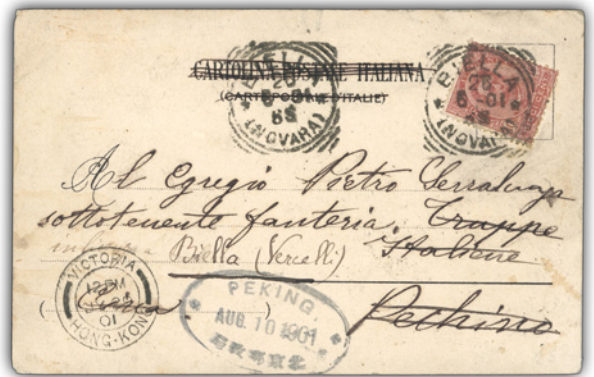 CARTOLINA POSTALE ITALIANA
(CARTE POSTALE D'ITALIE)
BIELLA
26
6-01
6S
(NOVARA)
BIELLA
26
6-01
(NOVARA)
Al Egregio Pietro Serralunga
sottotenente fanteria. Truppe
Biella (Vercelli) Italiane
VICTORIA
12 PM
01
HONG-KONG
(Cina)
PEKING.
AUG 10 1901
Pechino